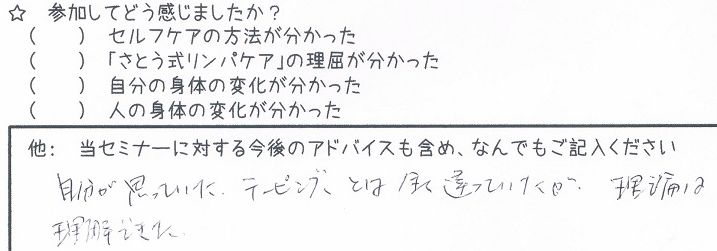 ☆ 参加してどう感じましたか?
( ) セルフケアの方法が分かった
( ) 「さとう式リンパケア」の理屈が分かった
( ) 自分の身体の変化が分かった
( ) 人の身体の変化が分かった
他: 当セミナーに対する今後のアドバイスも含め、なんでもご記入ください
自分が思っていた、テーピング、とは全く違っていたが、理論は
理解できた。